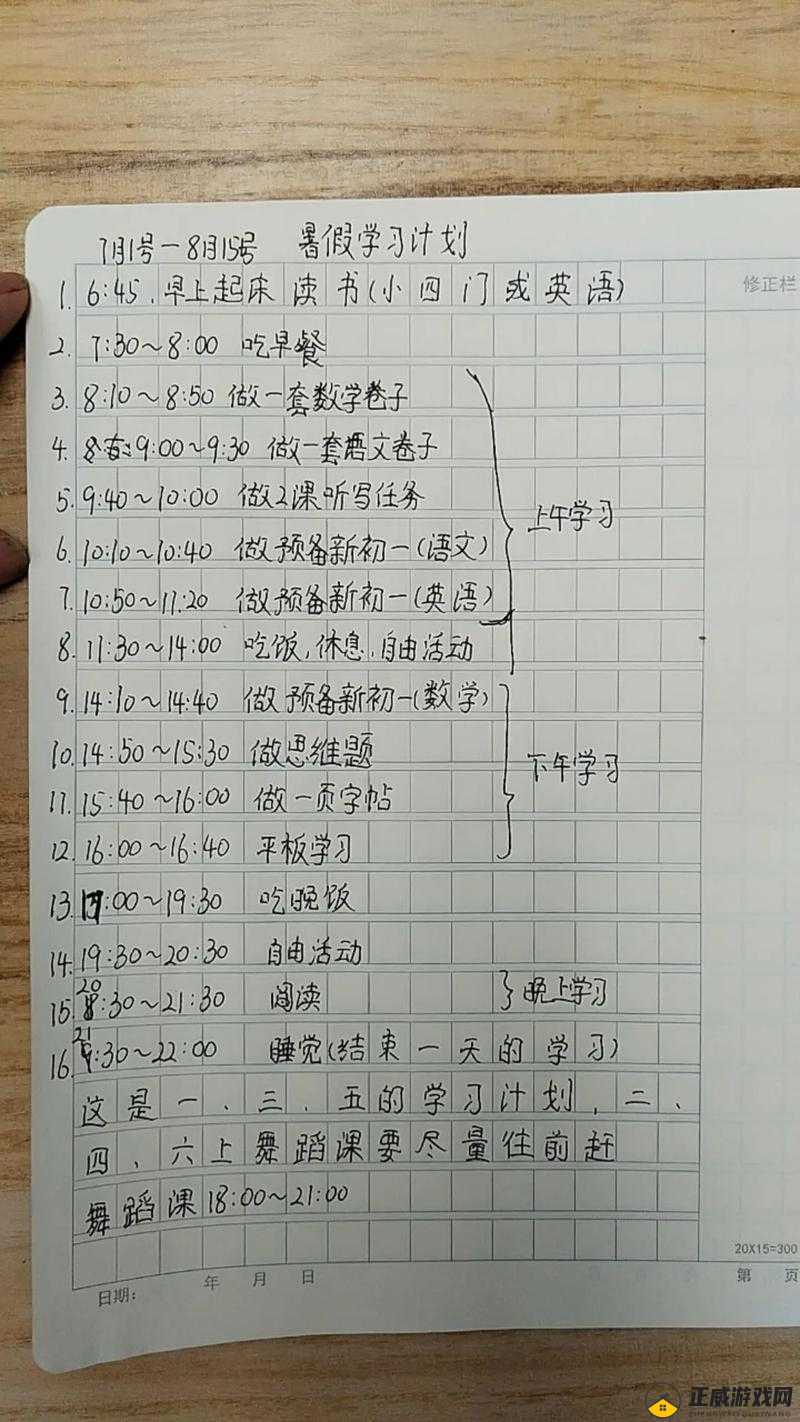 7月1号-8月15号 暑假学习计划
修正栏
1. 6:45. 早上起床读书(小四门或英语)
2. 7:30~8:00 吃早餐
3. 8:10~8:50 做一套数学卷子
4. 9:00~9:30 做一套语文卷子
5. 9:40~10:00 做2课听写任务
上午学习
6. 10:10~10:40 做预备新初一(语文)
7. 10:50~11:20 做预备新初一(英语)
8. 11:30~14:00 吃饭,休息,自由活动
9. 14:10~14:40 做预备新初一(数学)
10. 14:50~15:30 做思维题
下午学习
11. 15:40~16:00 做一页字帖
12. 16:00~16:40 平板学习
13. :00~19:30 吃晚饭
14. 19:30~20:30 自由活动
15. 20:30~21:30 阅读 晚上学习
16. 21:30~22:00 睡觉(结束一天的学习)
这是一、三、五的学习计划,二、
四、六上舞蹈课要尽量往前赶
舞蹈课18:00~21:00
20X15=300
日期: 年 月 日 第 页
正威游戏网